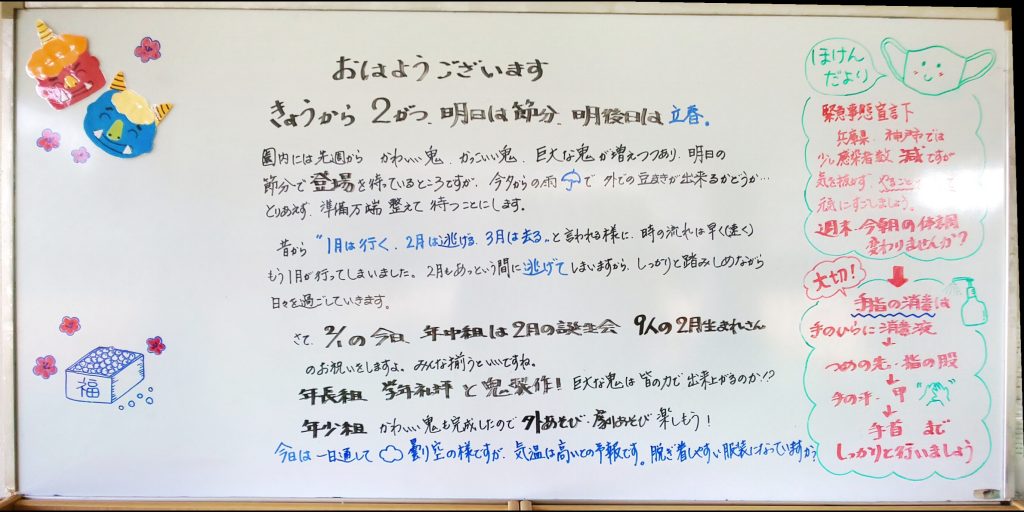 おはようございます
きょうから 2がつ、明日は節分、明後日は立春。
園内には先週から かわいい鬼、かっこいい鬼、巨大な鬼が増えつつあり、明日の
節分で登場を待っているところですが、今夕からの雨で 外での豆まきが出来るかどうか…
とりあえず、準備万端 整えて 待つことにします。
昔から "1月は行く、2月は逃げる、3月は去る"と言われる様に、時の流れは早く(速く)
もう1月が行ってしまいました。2月もあっという間に逃げてしまいますから、しっかりと踏みしめながら
日々を過ごしていきます。
さて、2/1の今日、年中組は2月の誕生会 9人の2月生まれさん
のお祝いをしますよ。みんな揃うといいですね。
年長組 学年礼拝と鬼製作!巨大な鬼は皆の力で出来上がるのか!?
年少組 かわいい鬼も完成したので 外あそび・劇あそび 楽しもう!
今日は一日通して 曇り空の様ですが、気温は高いとの予報です。脱ぎ着しやすい服装になっていますか?
福
ほけん
だより
緊急事態宣言下
兵庫県、神戸では
少し感染者数 減ですが
気を抜かず、やること
元気にすごしましょう。
週末・今朝の体調
変わりませんか?
大切!
手指の消毒は
手のひらに消毒液
↓
つめの先・指の股
↓
手の平・甲
↓
手首 まで
しっかりと行いましょう